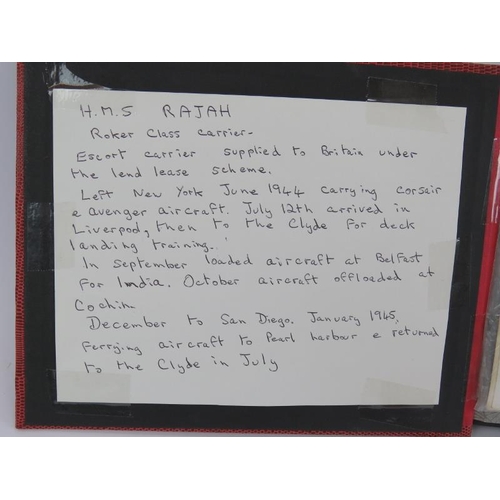 H.M.S RAJAH
Roker Class Carrier-
Escort carrier supplied to Britain under
the lend lease scheme.
Left New York June 1944 carrying corsair
e avenger aircraft. July 12th arrived in
Liverpool, then to the Clyde for deck
landing training.
In september loaded aircraft at Belfast
for India. October aircraft offloaded at
Cochin
December to San Diego. January 1945,
ferrying aircraft to Pearl harbour e returned
to the Clyde in July